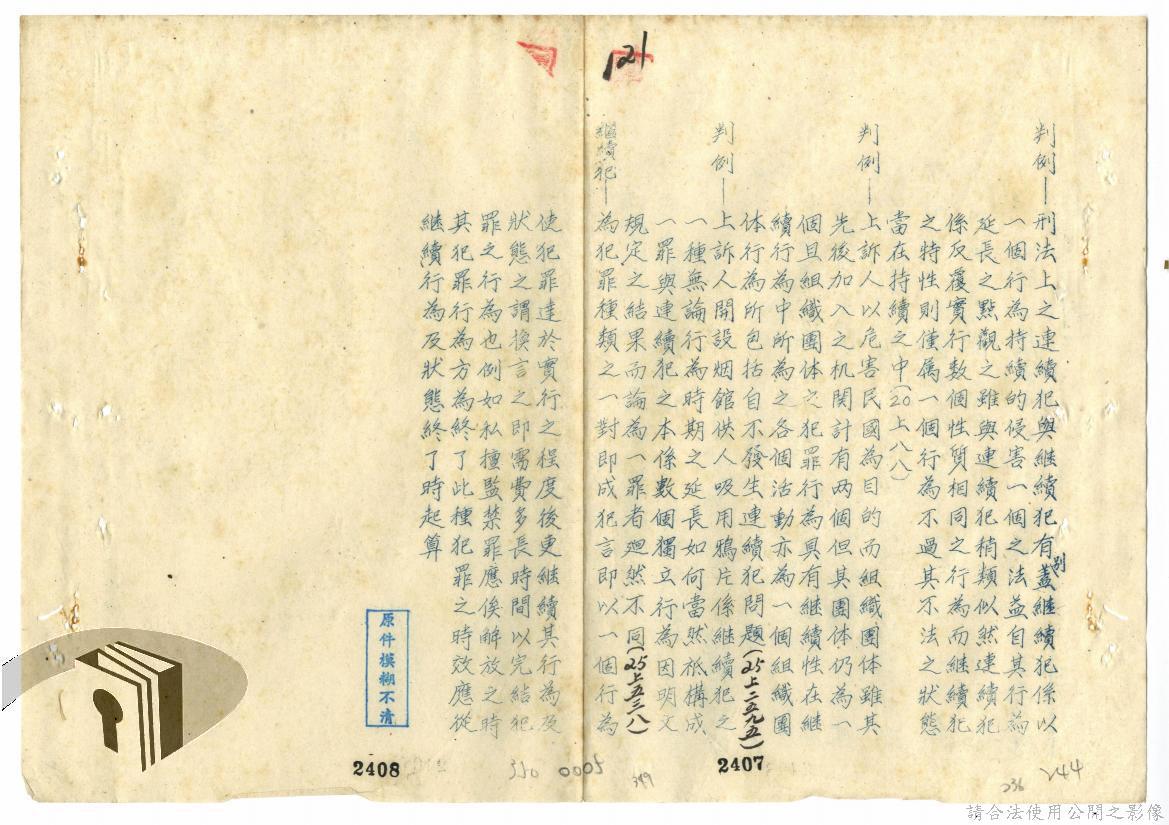 121
判例—刑法上之連續犯與継續犯有別蓋継續犯係以
一個行為持續的侵害一個之法益自其行為
延長之點觀之雖與連續犯稍類似然連續犯
係反覆實行數個性質相同之行為而継續犯
之特性則僅属一個行為不過其不法之狀態
當在持續之中(20上八八)
判例—上訴人以危害民國為目的而組織團体雖其
先後加入之机関計有两個但其團体仍為一
個且組織團体之犯罪行為具有継續性在継
續行為中所為之各個活動亦為一個組織團
体行為所包括自不發生連續犯問題(25上二五九五)
判例—上訴人開設烟館供人吸用鴉片係継續犯之
一種無論行為時期之延長如何當然祇構成
一罪與連續犯之本係數個獨立行為因明文
規定之結果而論為一罪者廻然不同(25上五三八)
継續犯—為犯罪種類之一對即成犯言即以一個行為
使犯罪達於實行之程度後更継續其行為及
狀態之謂換言之即需費多長時間以完結犯
罪之行為也例如私擅監禁罪應俟解放之時
其犯罪行為方為終了此種犯罪之時效應從
継續行為及狀態終了時起算
原件模糊不清
2407
2408
244
236
349
350
0005
請合法使用公開之影像